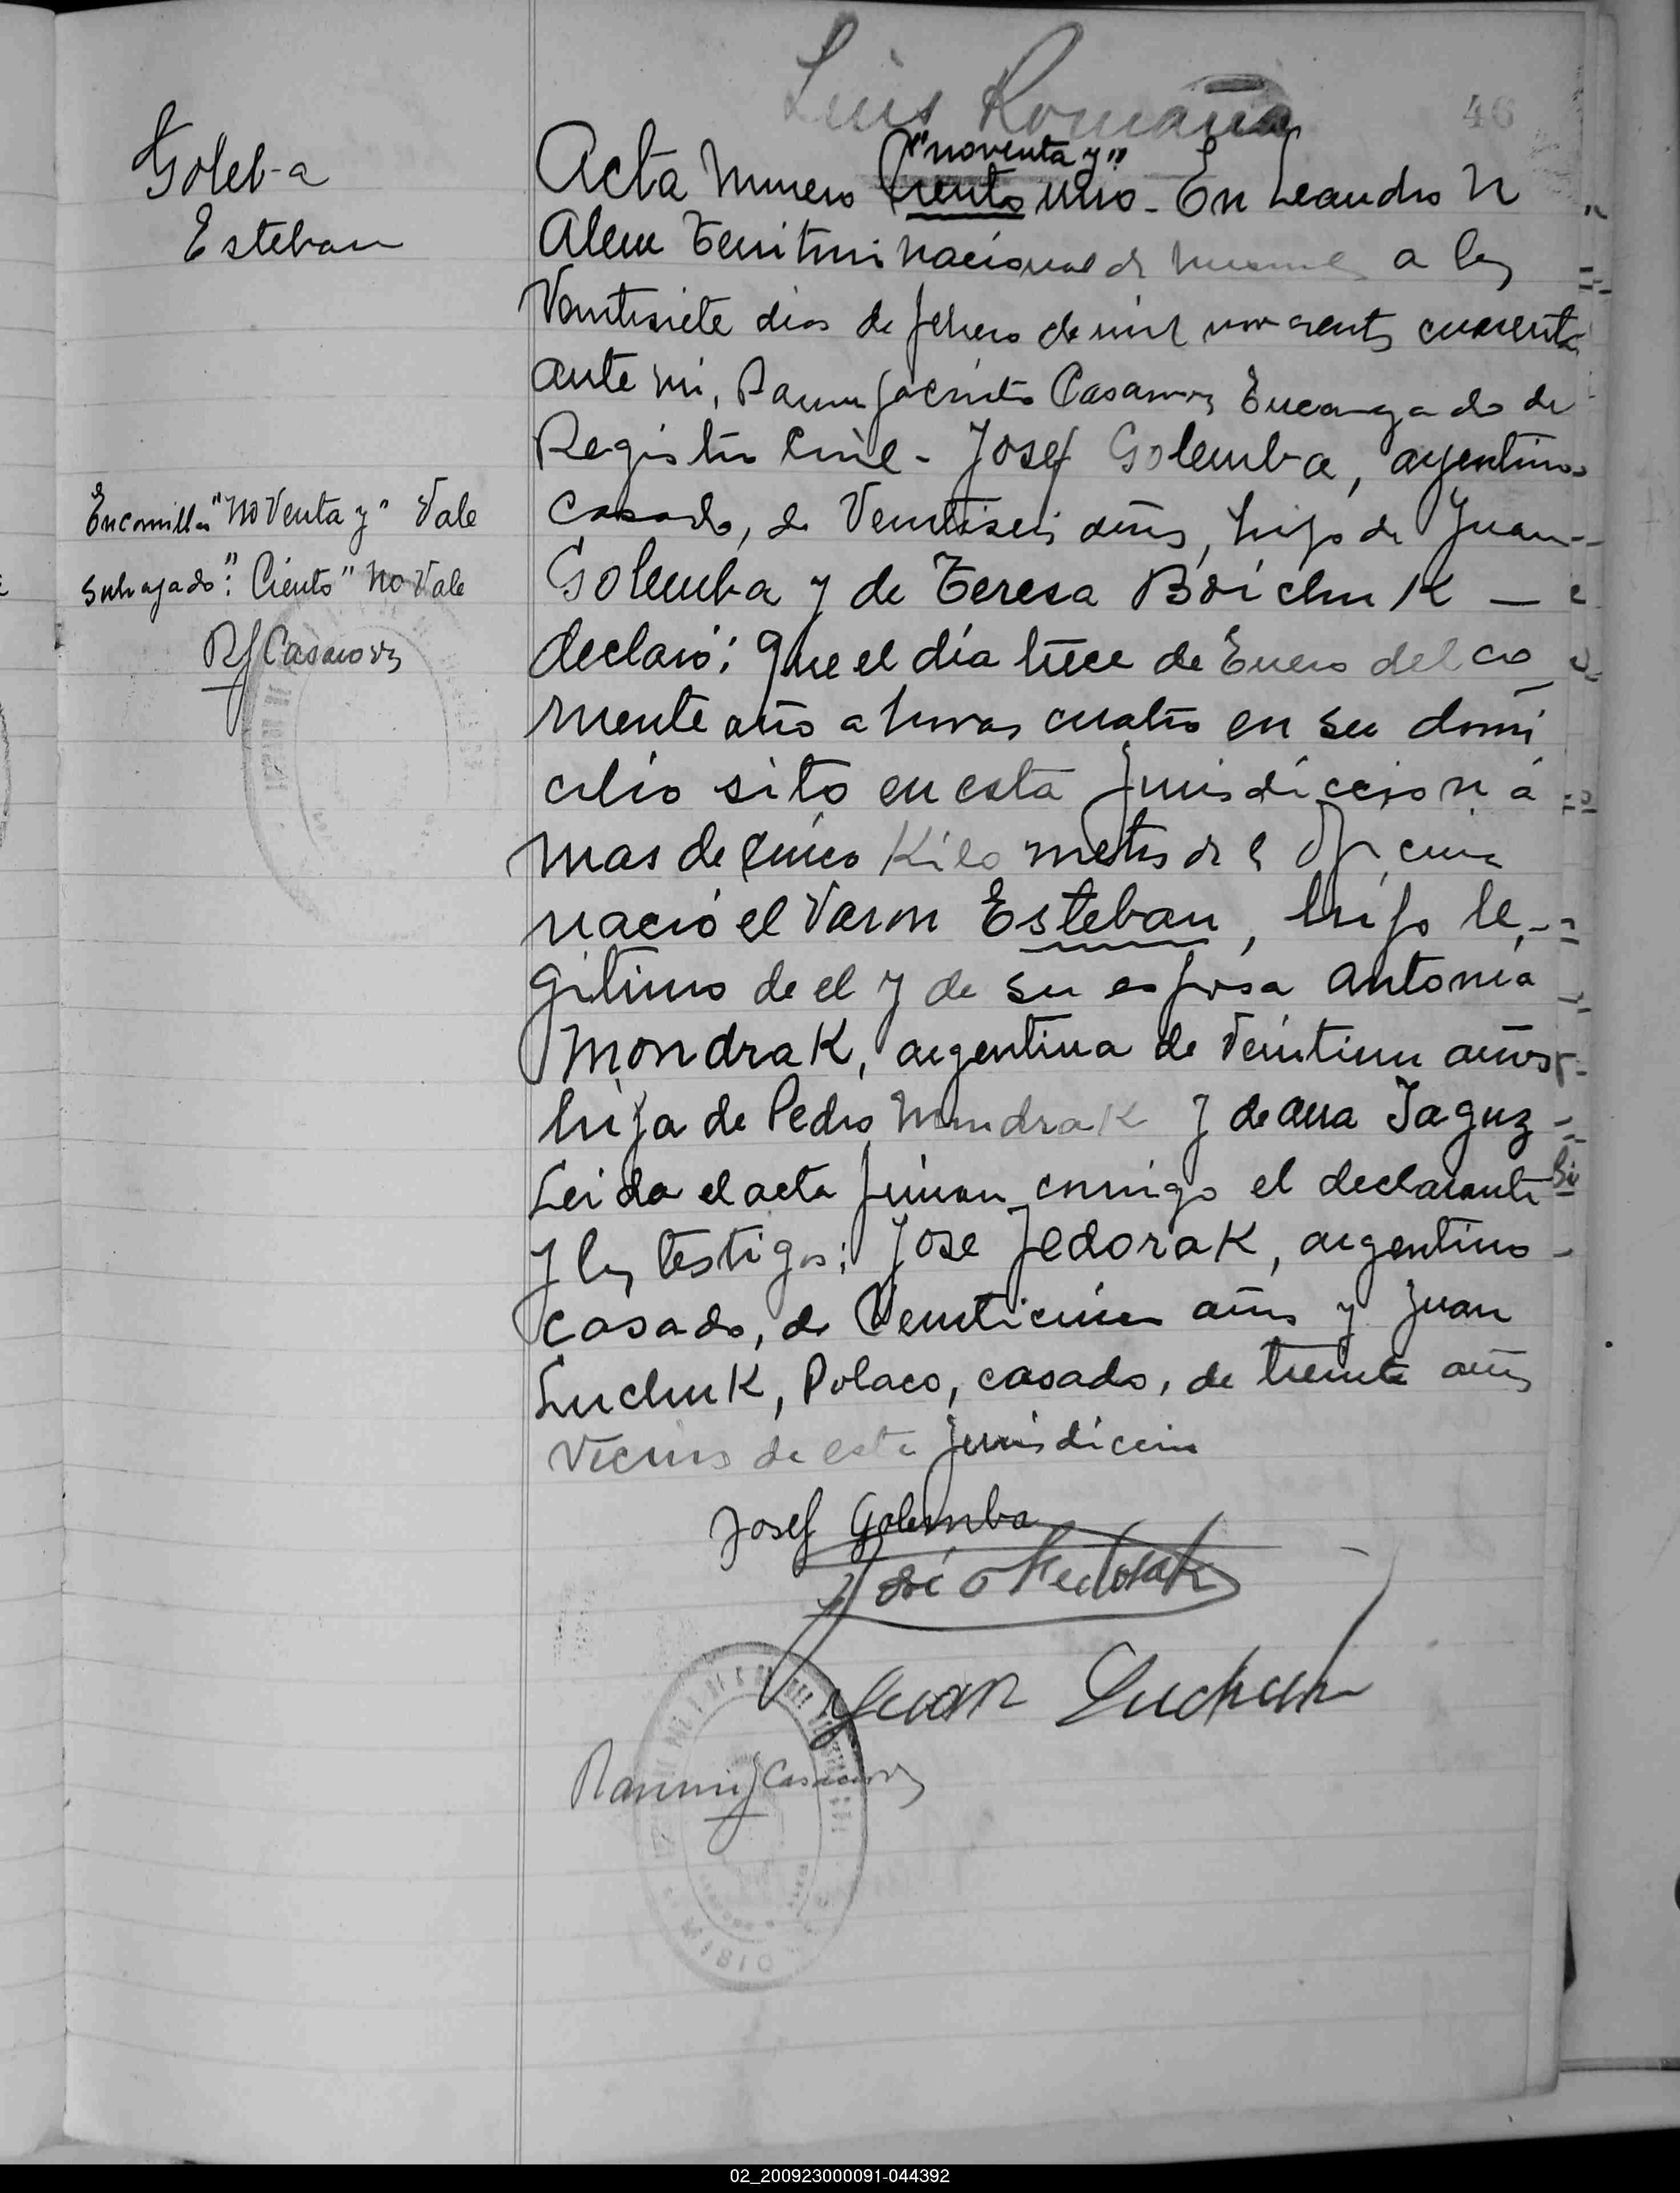 Luis Romaña
46
Goleb-a
Esteban
Acta Numero Ciento "noventa y" uno - En Leandro N
Alem Territorio nacional de Misiones a los
Veintisiete dias de febrero de mil novecientos cuarenta
ante mi, Ramon Jacinto Casanova Encargado de
Registro Civil - Josef Golemba, argentino
casado, de Veintiseis años, hijo de Juan
Golemba y de Teresa Boichuk —
declaró: Que el día trece de Enero del co
rriente año a horas cuatro en su domi
cilio sito en esta Jurisdiccion á
mas de cinco Kilometros de la Oficina
nació el Varon Esteban, hijo le
gitimo de el y de su esposa Antonia
Mondrak, argentina de Veintiun años
hija de Pedro Mondrak y de Ana Jaguz
Leida el acta firman conmigo el declarante
y los testigos: Jose Fedorak, argentino
casado, de Veinticinco años y Juan
Luchuk, Polaco, casado, de treinta años
Vecinos de esta Jurisdiccion
Encomillas "Noventa y" Vale
Subrayado: "Ciento" No Vale
RJCasanova
Josef Golemba
José Fedorak
Juan Luchuk
Ramon J Casanova
02_200923000091-044392